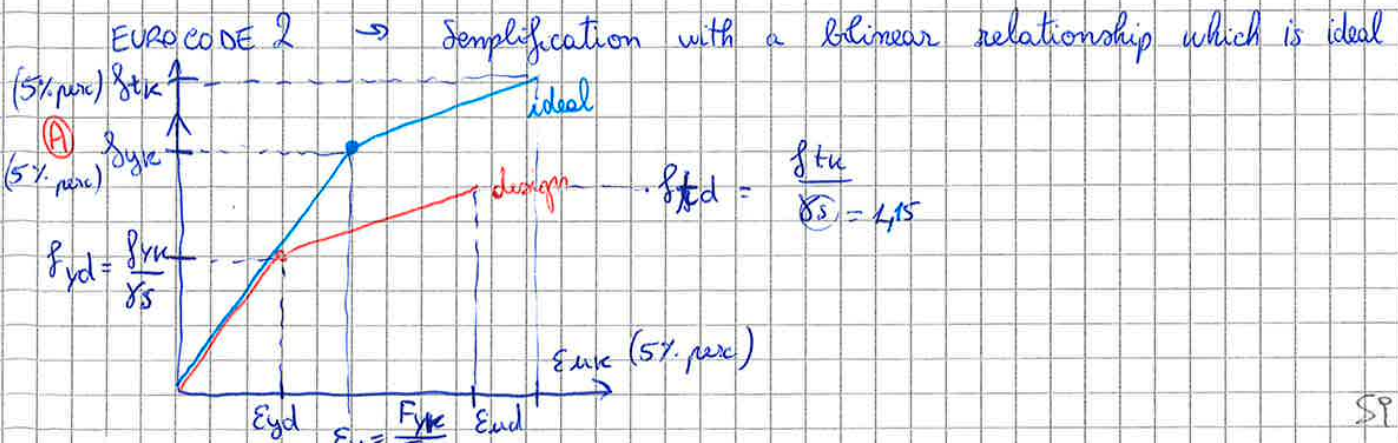 EUROCODE 2 → Semplification with a bilinear relationship which is ideal
(5% perc) ftk
ideal
A
(5% perc) fyk
design
ftd = ftk / γs = 1,15
fyd = fyk / γs
εuk (5% perc)
εyd
Fyk
εud
59